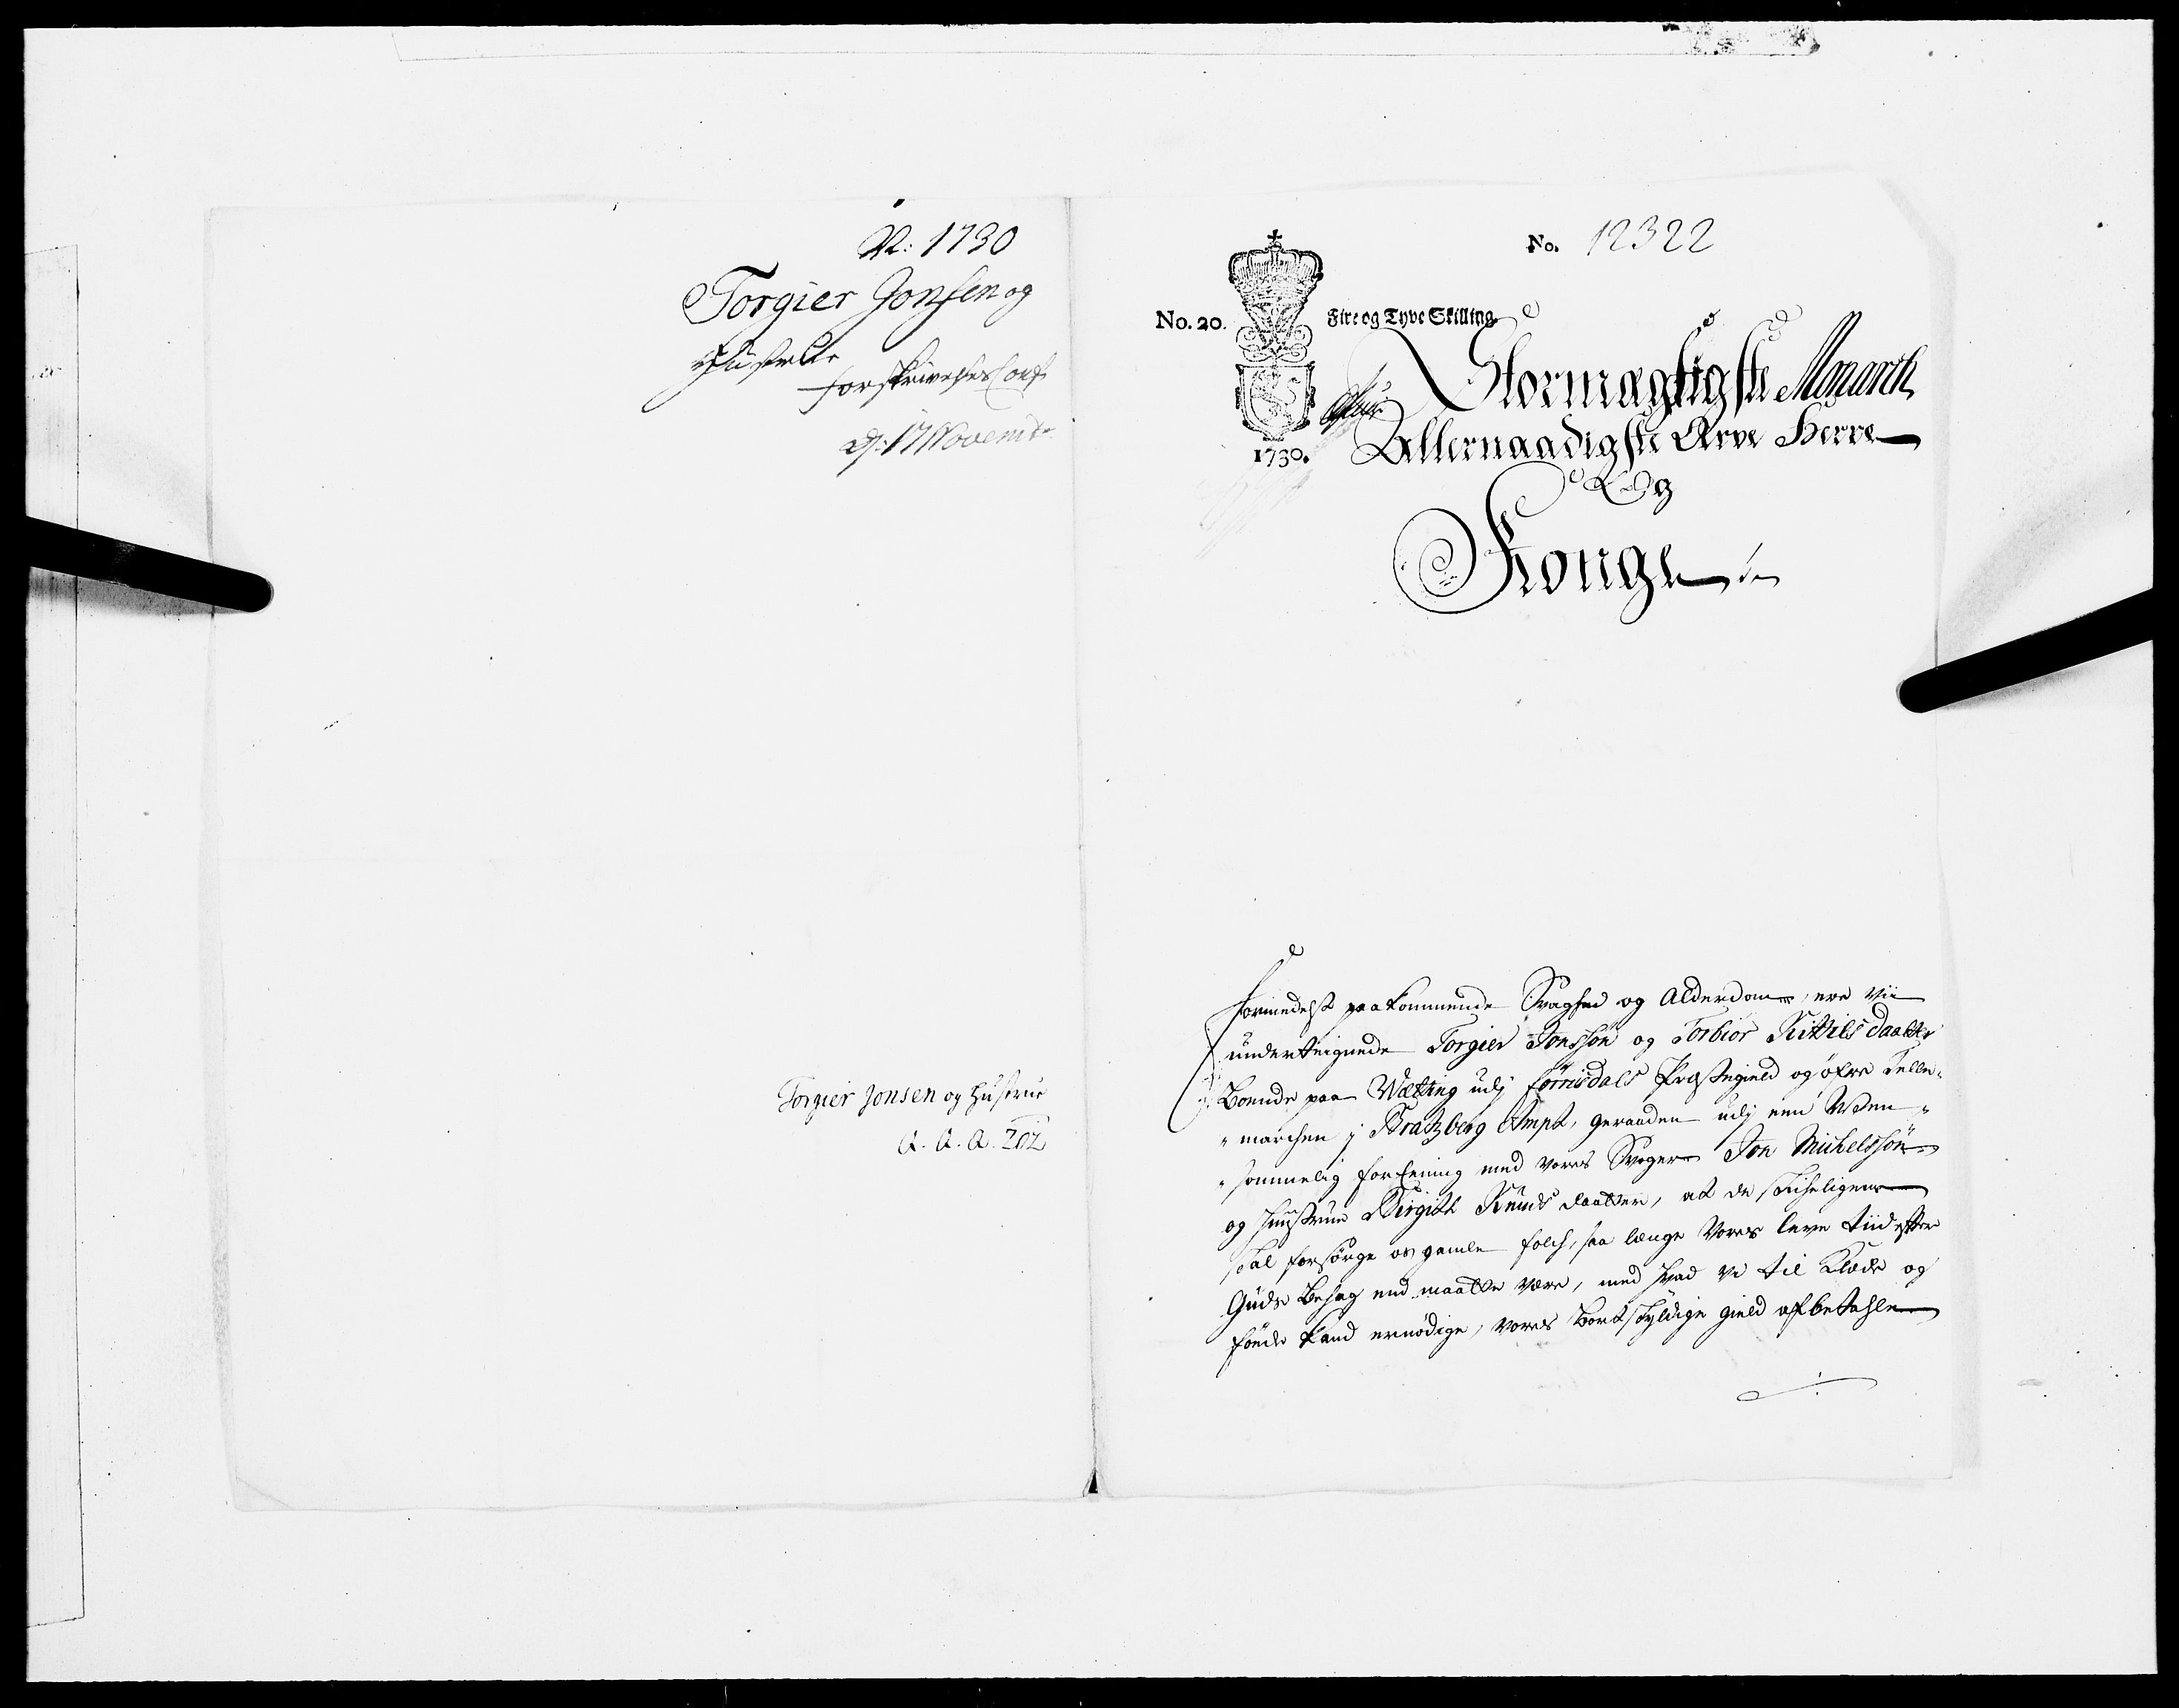 N: 1730
Torgier Jonsen og
Hustrue
forskrivelses Conf.
d: 17 Novembr
Torgier Jonsen og Hustrue
A. A. A. 202
No. 12322
No. 20. Fire og Tyve Skilling
1730.
Stormægtigste Monarch
Allernaadigste Arve Herre
Og
Konge
Formedelst paakommende Svaghed og Alderdom, ere vii
underteignede Torgier Jonssøn og Torbior Kittils daatter
Boende paa Wætting udj Førrisdals Præstegield og øfre Telle-
marchen j Bratzberg Ampt, geraaden udj een Venn-
sommelig forEening med vores Svoger Jon Michelssøn
og Hustrue Birgith Knuds daatter, at de skicheligen
skal forsørge os gamle folch, saa længe vores leve tiid efter
Guds Behag end maatte være, med hvad vi til Klæde og
føede kand ernødige, vores bortskyldige gield afbetahle